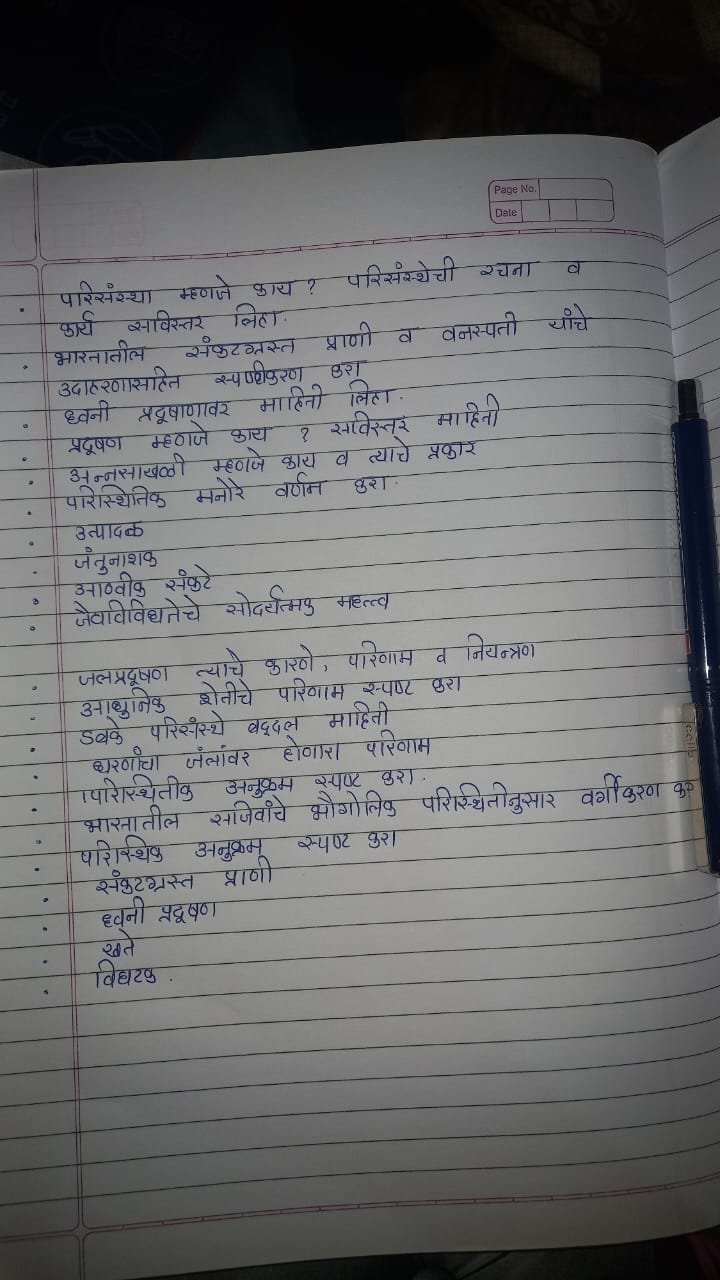 Page No.
Date
परिसंस्था म्हणजे काय ? परिसंस्थेची रचना व
कार्य सविस्तर लिहा.
भारतातील संकटग्रस्त प्राणी व वनस्पती यांचे
उदाहरणासहित स्पष्टीकरण करा
ध्वनी प्रदूषाणावर माहिती लिहा.
प्रदूषण म्हणजे काय ? सविस्तर माहिती
अन्नसाखळी म्हणजे काय व त्याचे प्रकार
परिस्थितिक मनोरे वर्णन करा.
उत्पादक
जंतुनाशक
आण्वीक संकटे
जैवविविधतेचे सोदर्यात्मक महत्त्व
जलप्रदूषण त्याचे कारणे, परिणाम व नियन्त्रण
आधुनिक शेतीचे परिणाम स्पष्ट करा
डबके परिसंस्थे बद्दल माहिती
धरणांचा जंलांवर होणारा परिणाम
परिस्थितीक अनुक्रम स्पष्ट करा.
भारतातील सजिवांचे भौगोलिक परिस्थितीनुसार वर्गीकरण
परिस्थिक अनुक्रम स्पष्ट करा
संकटग्रस्त प्राणी
ध्वनी प्रदूषण
खते
विघटक .